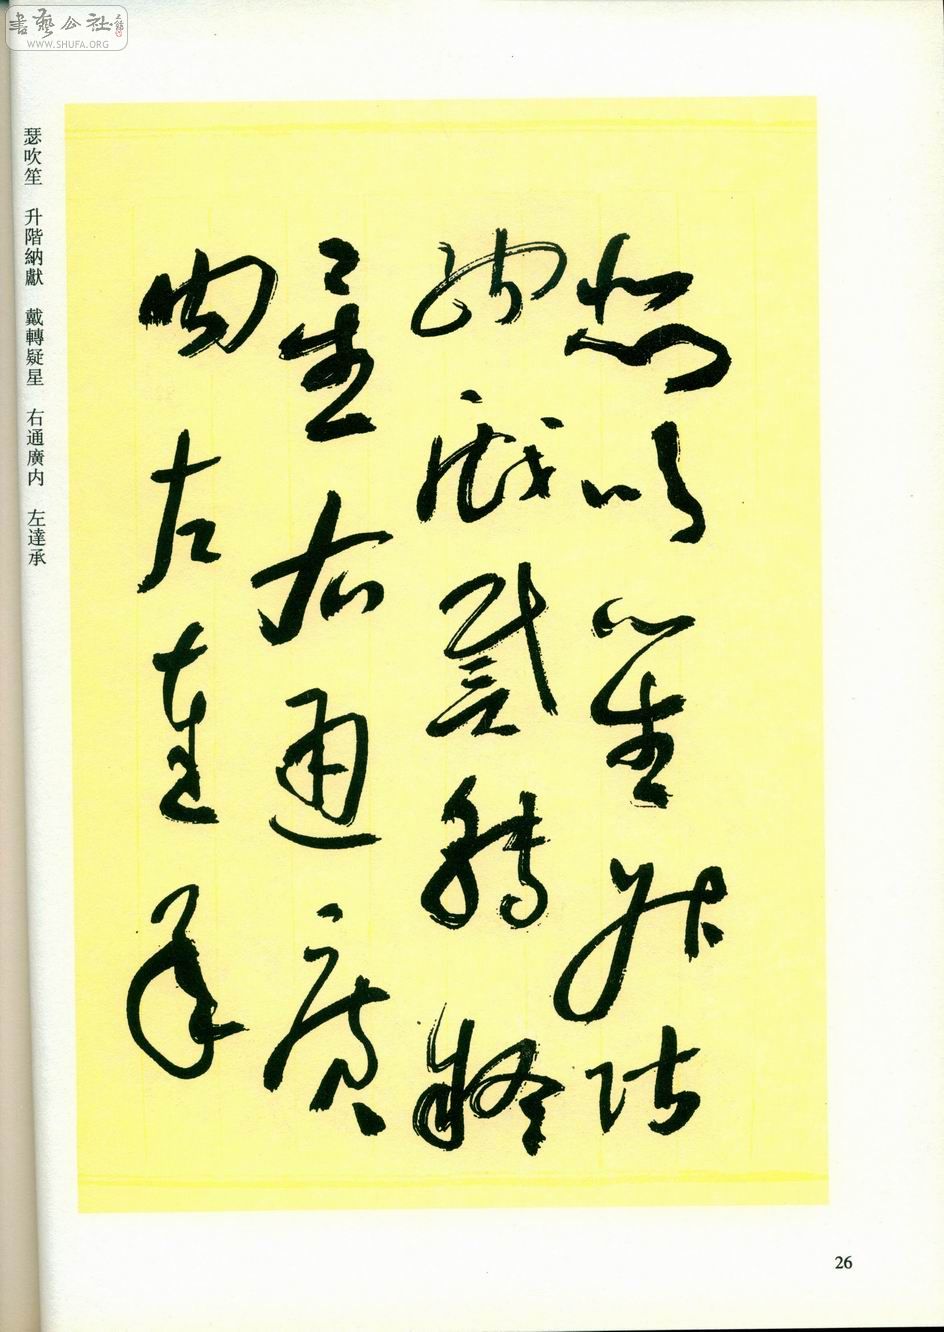 書藝公社
WWW.SHUFA.ORG
瑟吹笙升階
納獻戴轉疑
星右通廣
内左達承
瑟吹笙 升階納獻 戴轉疑星 右通廣内 左達承
26